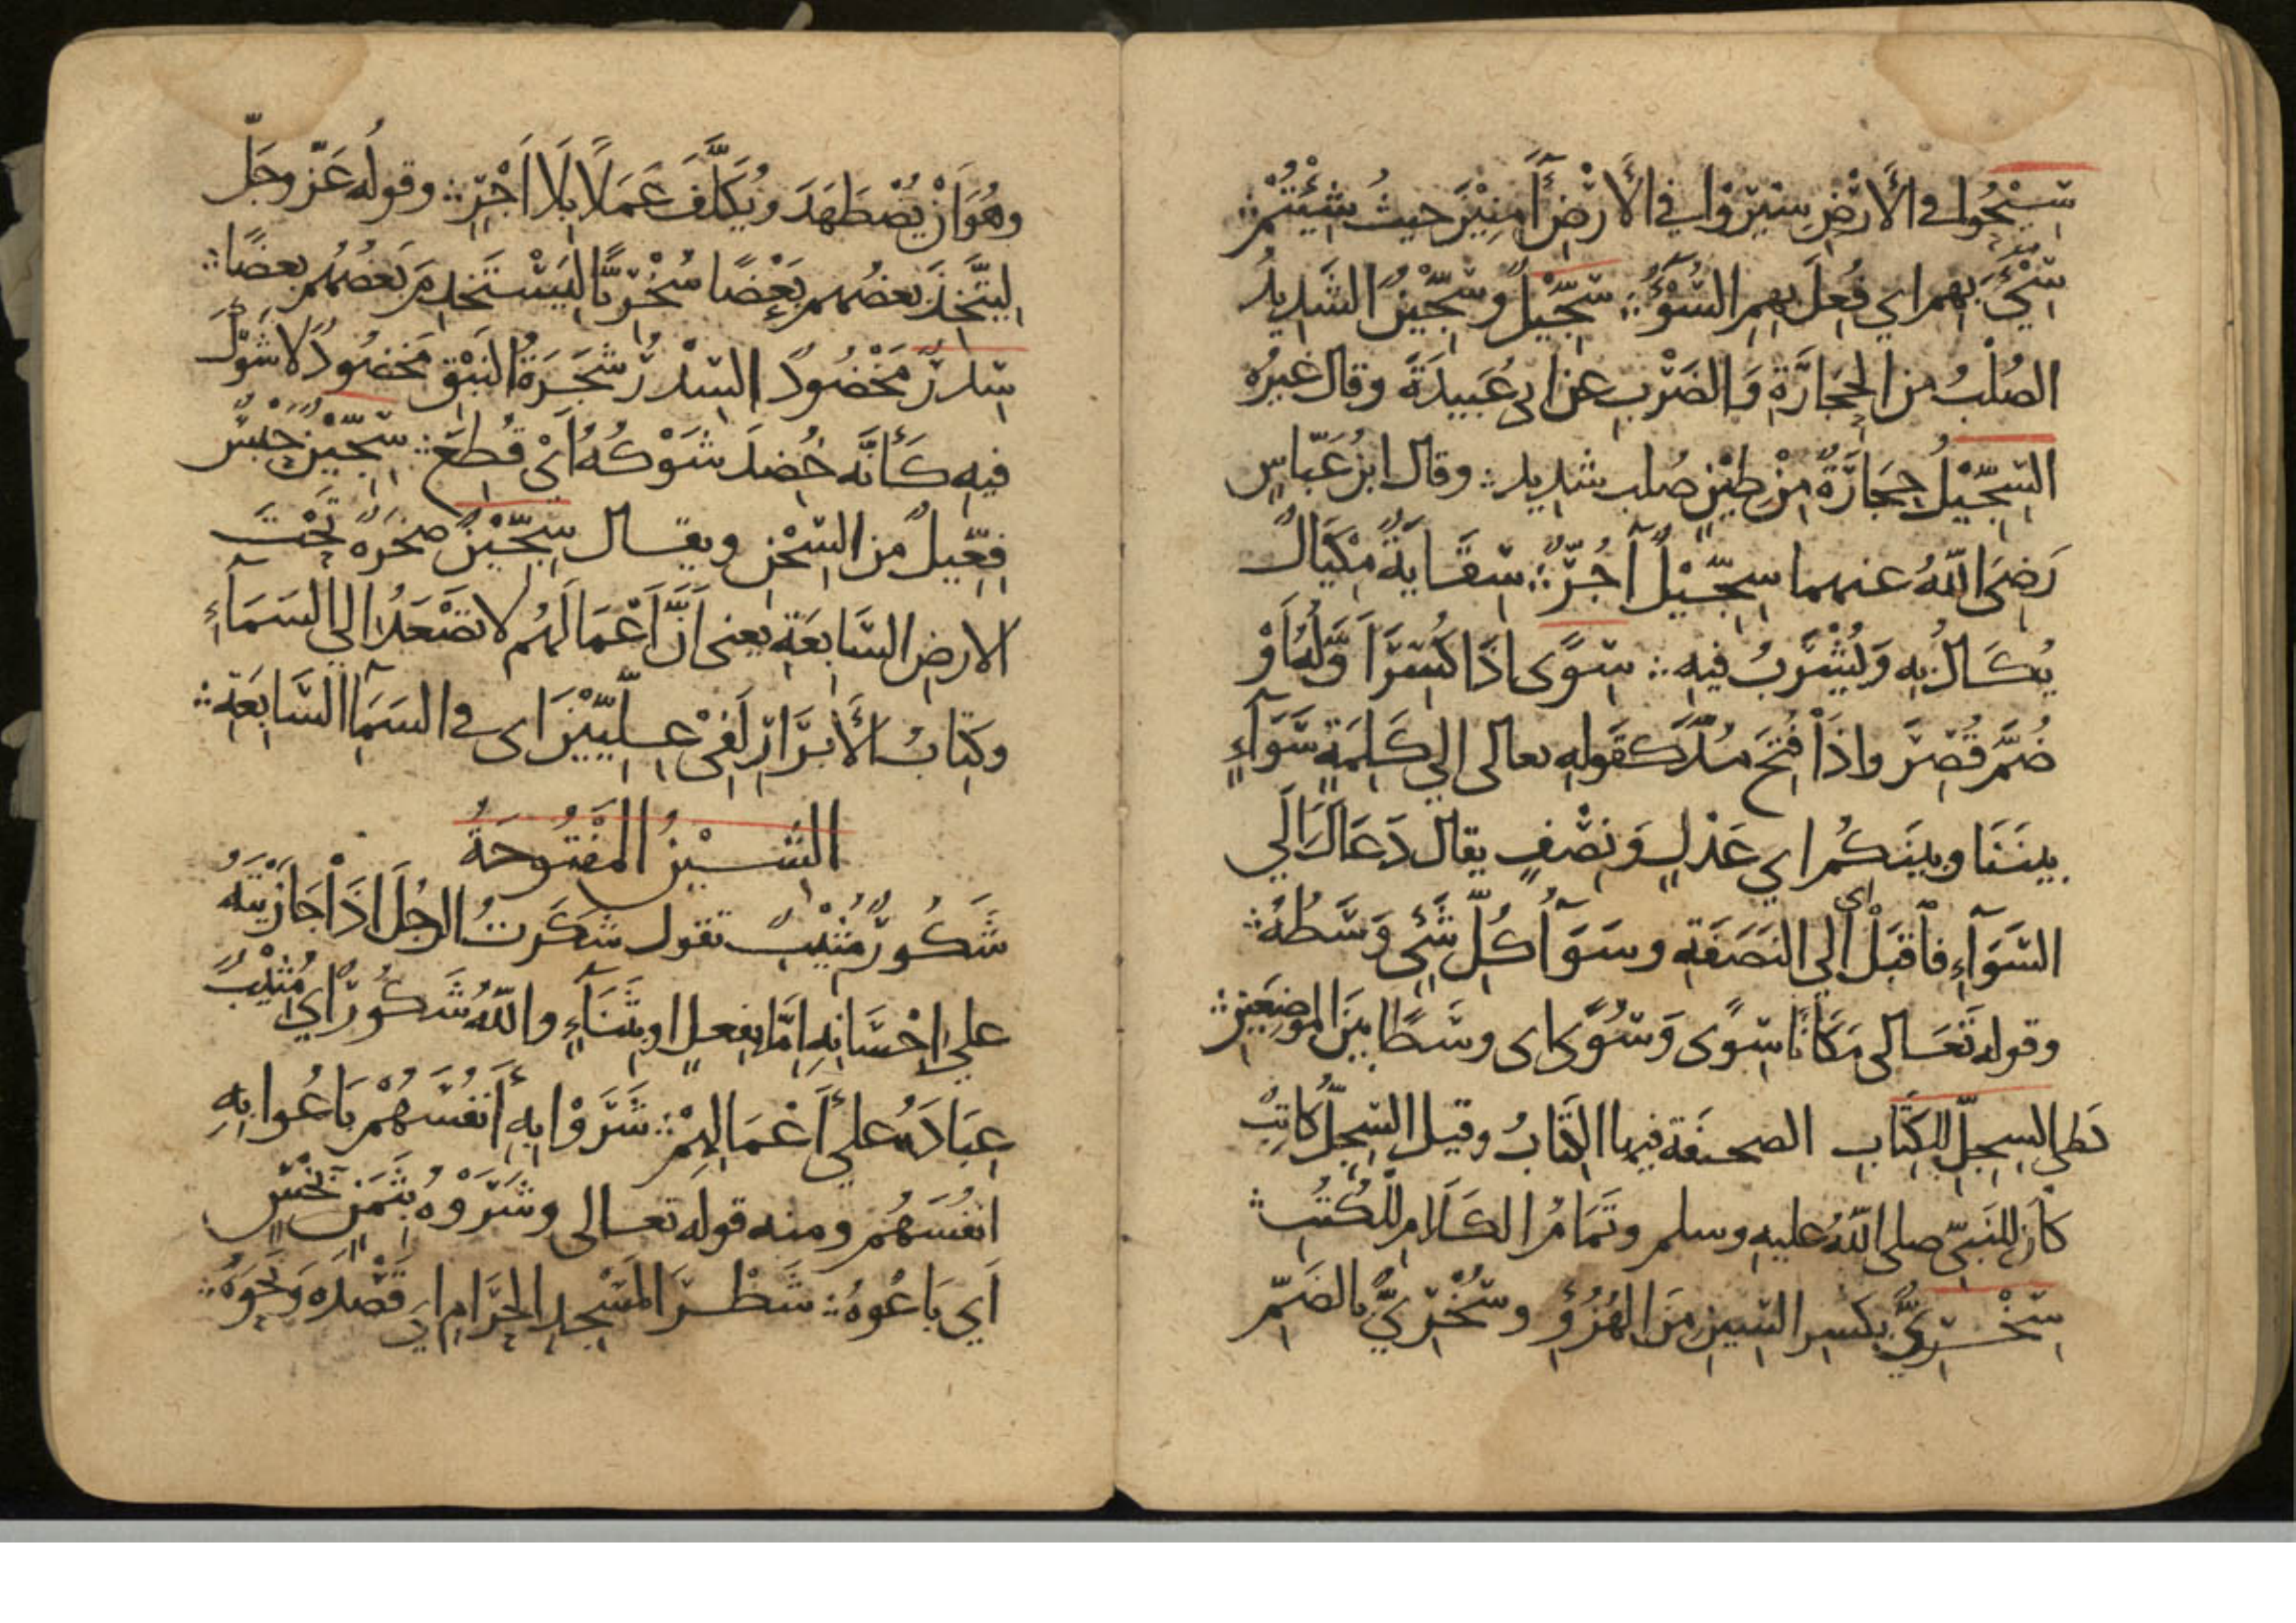 سِيْحُوا في الأَرْضِ سِيْرُوا في الأَرْضِ آمِنِيْنَ حيثُ شِئْتُمْ ؞
سِيْءَ بهم اي فُعِلَ بِهِمِ السُّوْءُ ؞ سِجِّيْلٌ وسِجِّيْنٌ الشَدِيدُ
الصُلْبُ من الحِجَارَةِ وَالضَرْبِ عن ابي عُبَيدَةَ وقال غيرُه
السِّجِّيْلُ حِجَارَةٌ مِنْ طِيْنٍ صُلبٍ شديدٍ ؞ وقال ابنُ عَبّاسٍ
رَضِيَ اللّهُ عنهما سِجِّيْلٌ آجُرٌّ ؞ سِقَايَةٌ مِكْيَالٌ
يُكَالُ بِهِ وَيُشْرَبُ فيهِ ؞ سِوًى اذَا كُسِرَ أَوَّلُهُ اَوْ
ضُمَّ قُصِرَ واذَا فُتِحَ مُدَّ كقولهِ تعالى إلى كَلِمَةٍ سَوَآءٍ
بينَنَا وبينَكُم اي عَدْلٍ وَنِصْفٍ يقال دَعَاكَ الي
السَّوَآءِ فاقْبَلْ اي الي النَصَفَةِ وسَوَآءُ كُلِّ شَيْءٍ وَسَطُهُ ؞
وقوله تَعَالى مَكَانًا سِوًى وَسُوًى اى وسَطًا بيْنَ الموضِعَيْنِ ؞
كَطَيِّ السِجِلِّ للكِتَابِ الصحيفَة فيها الكِتَابُ وقيل السِّجِلُّ كَاتِبٌ
كانَ للنَبِيِّ صلى اللّهُ عليهِ وسلم وتَمَامُ الكَلَامِ للْكُتُبِ ؞
سِخْرِيٌّ بكسرِ السّينِ مِنَ الهُزُؤِ وسُخْرِيٌّ بالضَمِّ
وهُوَ اَنْ يُضْطَهَدَ ويُكَلَّفَ عَمَلًا بِلَا اَجْرٍ ؞ وقوله عَزّ وجَلّ
لِيَتَّخِذَ بعضُهم بَعْضًا سُخْرِيًّا لِيَسْتَخدِمَ بَعضُهُم بعضًا ؞
سِدْرٌ مَخْضُودٌ السِّدْرُ شَجَرَةُ النَبْقِ مَخضُودٌ لا شَوْكَ
فيهِ كَأَنَّه خُضِدَ شَوْكُهُ اَىْ قُطِعَ ؞ سِجِّيْنٌ حَبْسٌ
فِعِّيلٌ من السِّجْنِ ويقال سِجِّيْنٌ صَخْرَةٌ تَحْتَ
الارضِ السَّابِعَةِ يعنى اَنَّ اَعْمَالَهُم لا تَصْعَدُ الي السَمَآءِ
وكِتَابُ الأَبْرَارِ لَفِىْ عِلِّيِّيْنَ اى في السَمَآ السَّابِعَةِ ؞
الشيْنُ المَفْتُوحَةُ
شَكُورٌ مُثِيْبٌ تقول شَكَرتُ الرجُلَ اذَا جَازَيْتَهُ
علي اِحْسَانِهِ اِمَّا بِفِعلٍ اوبِثَنَآءٍ واللّهُ شَكُورٌ اي مُثِيْبٌ
عِبَادَهُ علي أَعْمَالِهِمْ ؞ شَرَوْا بِهِ أَنفُسَهُمْ بَاعُوا بِهِ
انفُسَهُم ومنه قوله تعالى وشَرَوْهُ بِثَمَنٍ بَخْسٍ
اَي بَاعُوهُ ؞ شَطْرَ المَسْجِدِ الحَرَامِ اي قَصْدَه وَنَحْوَهُ ؞